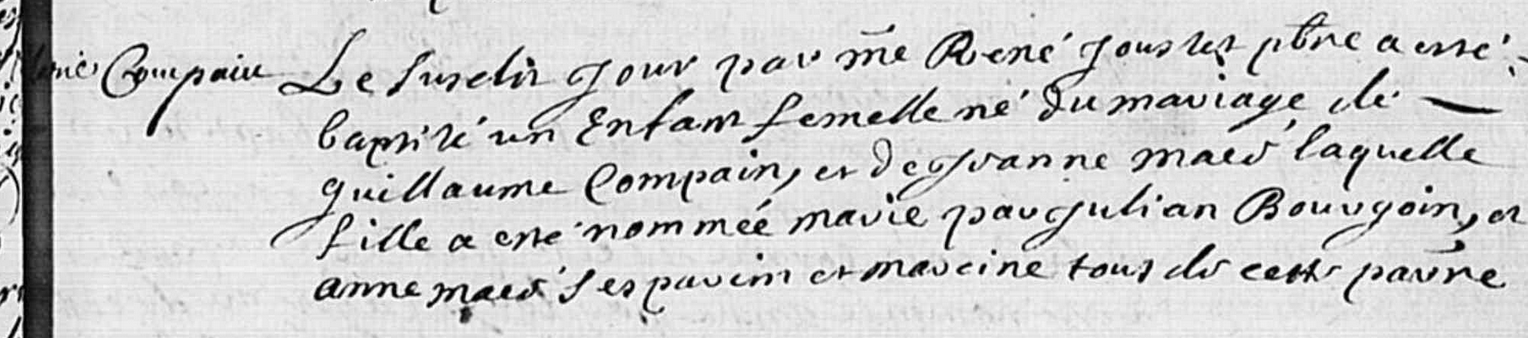 Compain Le susdit Jour par me René Joustet pbre a esté
baptisé un Enfant femelle né du mariage de
guillaume Compain, et de Jeanne maes laquelle
fille a esté nommeé marie par Julian Bourgoin, et
anne maes ses parin et mareine tous de cette parre